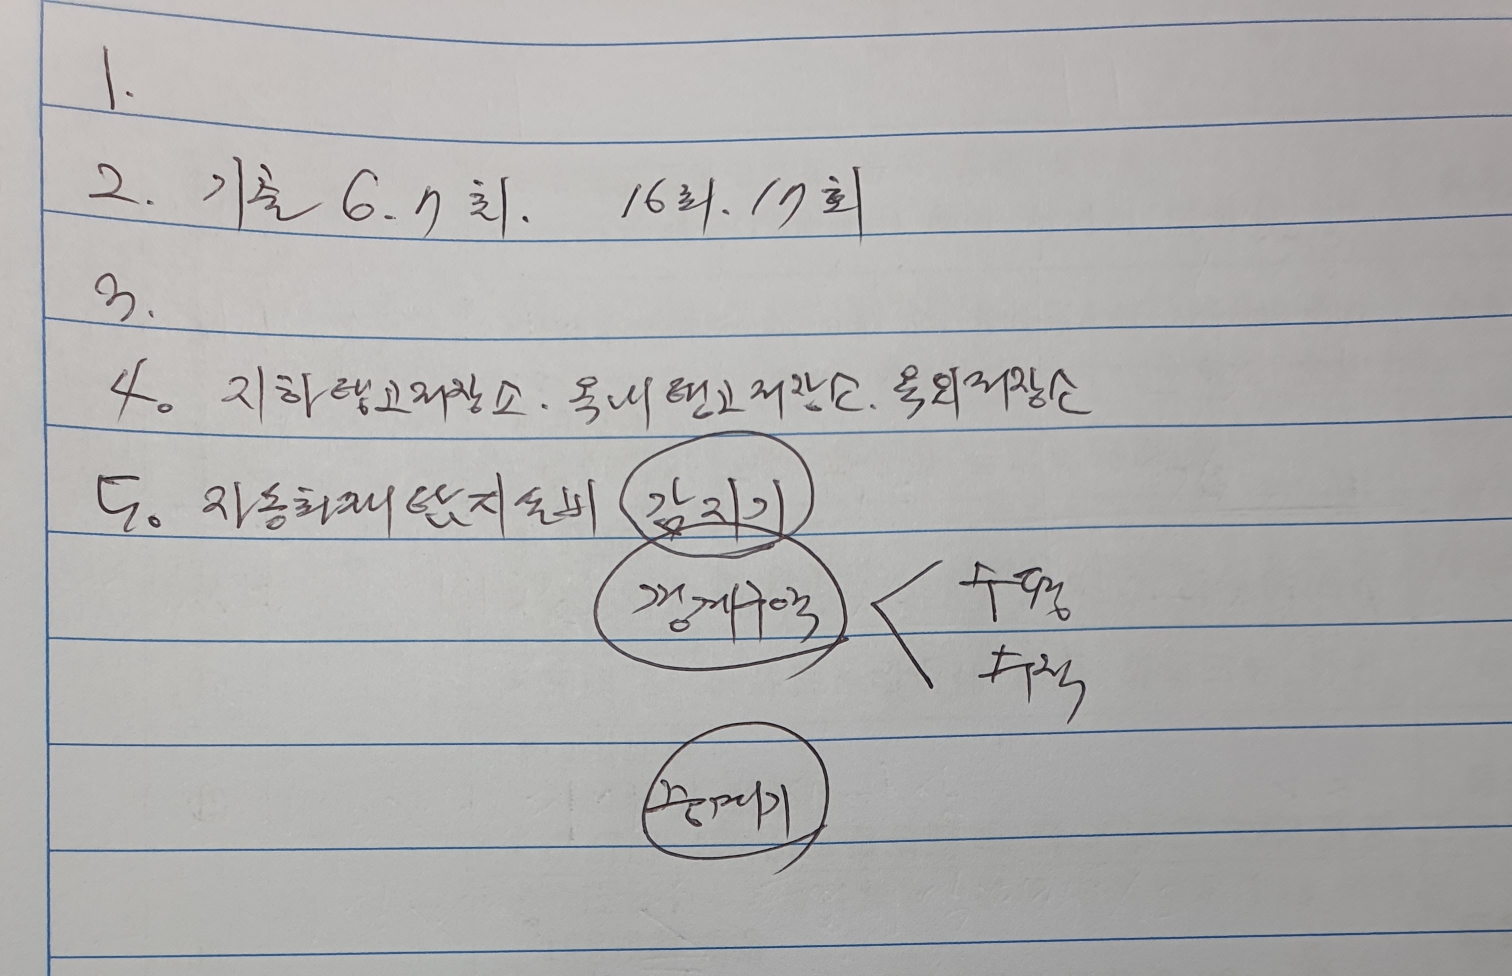 1.
2. 기출 6.7회. 16회.17회
3.
4. 지하탱크저장소. 옥내탱크저장소. 옥외저장소
5. 자동화재탐지설비 감지기
경계구역 < 수평
수직
중계기